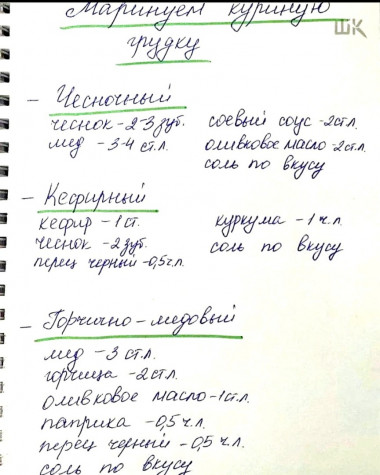 Маринуем куриную
грудку
ШК
- Чесночный
чеснок - 2-3 зуб.
мед - 3-4 ст.л.
соевый соус - 2 ст.л.
оливковое масло - 2 ст.л.
соль по вкусу
- Кефирный
кефир - 1 ст.
чеснок - 2 зуб.
перец черный - 0,5 ч.л.
куркума - 1 ч.л.
соль по вкусу
- Горчично-медовый
мед - 3 ст.л.
горчица - 2 ст.л.
оливковое масло - 1 ст.л.
паприка - 0,5 ч.л.
перец черный - 0,5 ч.л.
соль по вкусу